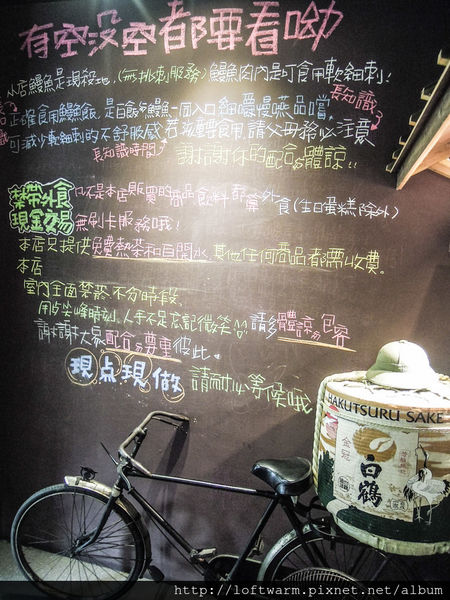 有空沒空都要看呦
本店鰻魚是現殺地,(無挑刺服務)鰻魚肉內是可食用軟細刺!
長知識
正確食用鰻魚飯,是白飯多鰻魚一個入口細嚼慢燕品嚐,
可減少軟細刺的不舒服感 若孩童食用,請父母務必注意
長知識時間 謝謝你的配合&體諒!!
禁帶外食 只不是本店販買的商品飲料 都禁外食(生日蛋糕除外)
現金交易 無刷卡服務哦!
本店只提供免費熱茶和白開水,其他任何商品都需收費。
本店
室內全面禁菸,不分時段,
用餐尖峰時刻,人手不足忘記微笑 請多體諒&包容
謝謝大家配合&尊重彼此。
現点現做 請耐心等候哦
HAKUTSURU SAKE
金冠
白鶴
http://loftwarm.pixnet.net/album